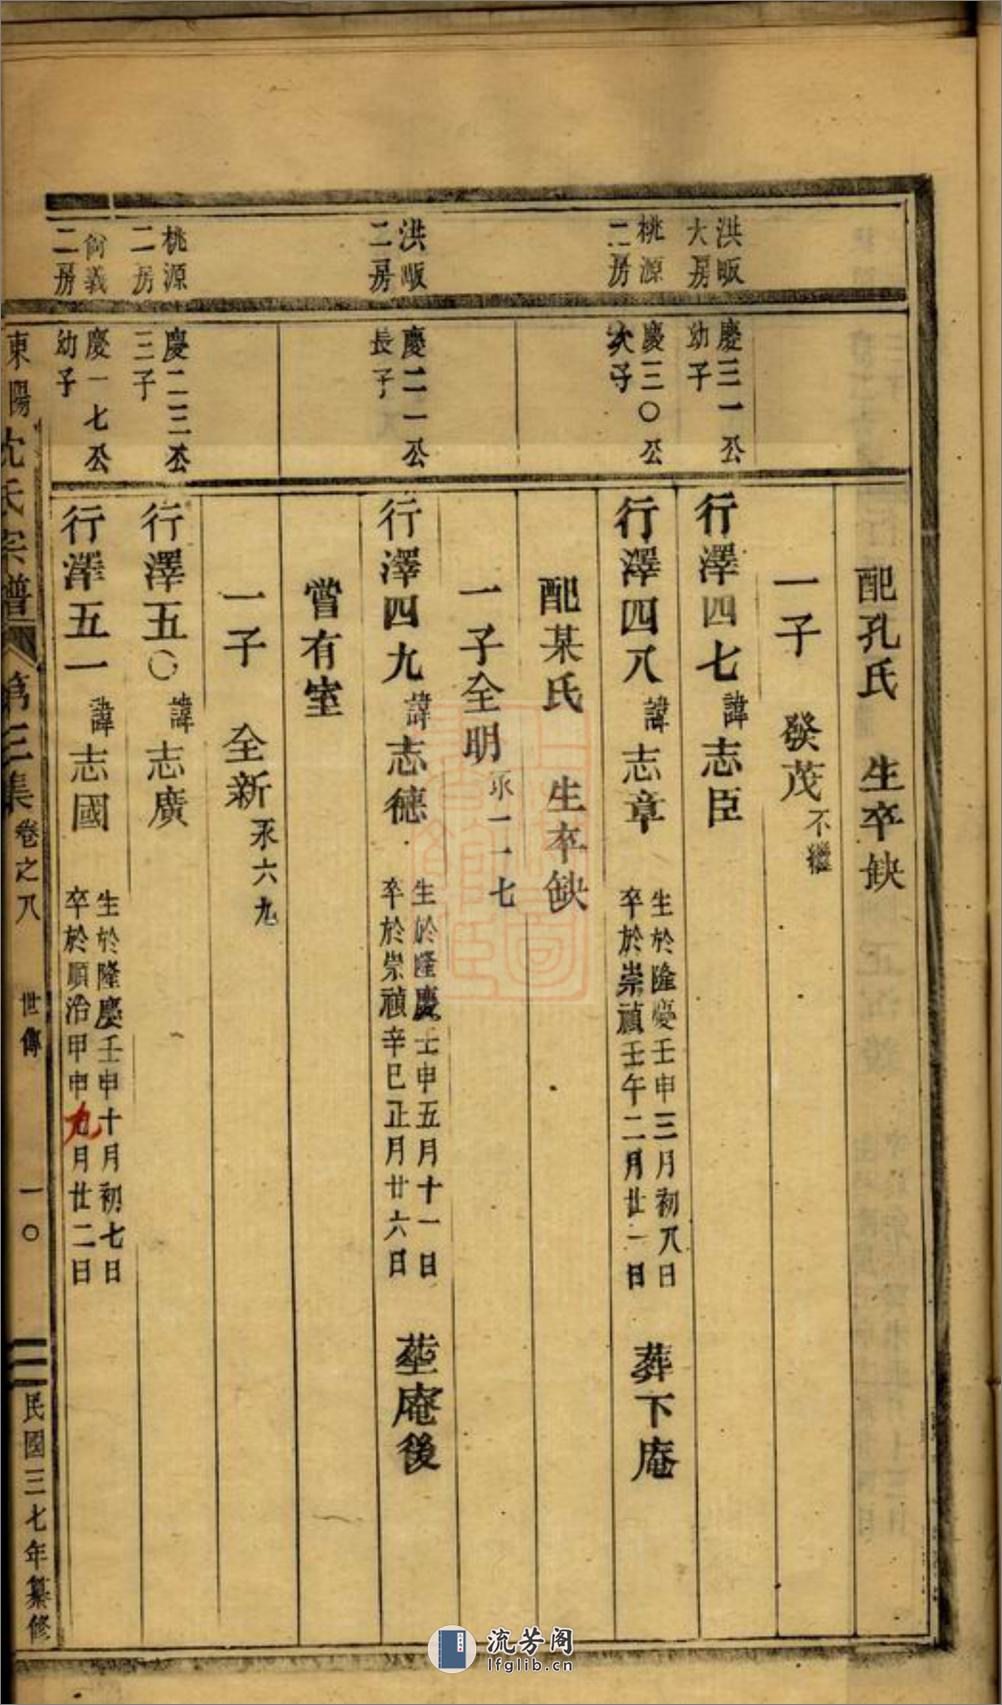 配孔氏 生卒缺
一子 發茂 不繼
洪畈
大房
慶三一公
幼子
行澤四七 諱 志臣
桃源
二房
慶三〇公
次子
行澤四八 諱 志章 生於隆慶壬申三月初八日
卒於崇禎壬午二月廿一日
葬下庵
配某氏 生卒缺
一子全明 承一一七
洪畈
二房
慶二一公
長子
行澤四九 諱 志德 生於隆慶壬申五月十一日
卒於崇禎辛巳正月廿六日
塟庵後
嘗有室
一子 全新 承六九
桃源
二房
慶二三公
三子
行澤五〇 諱 志廣
尙義
二房
慶一七公
幼子
行澤五一 諱 志國 生於隆慶壬申十月初七日
卒於順治甲申九月廿二日
東陽沈氏宗譜 第三集 卷之八 世傳 一〇 民國三七年纂修
流芳阁
lfglib.cn